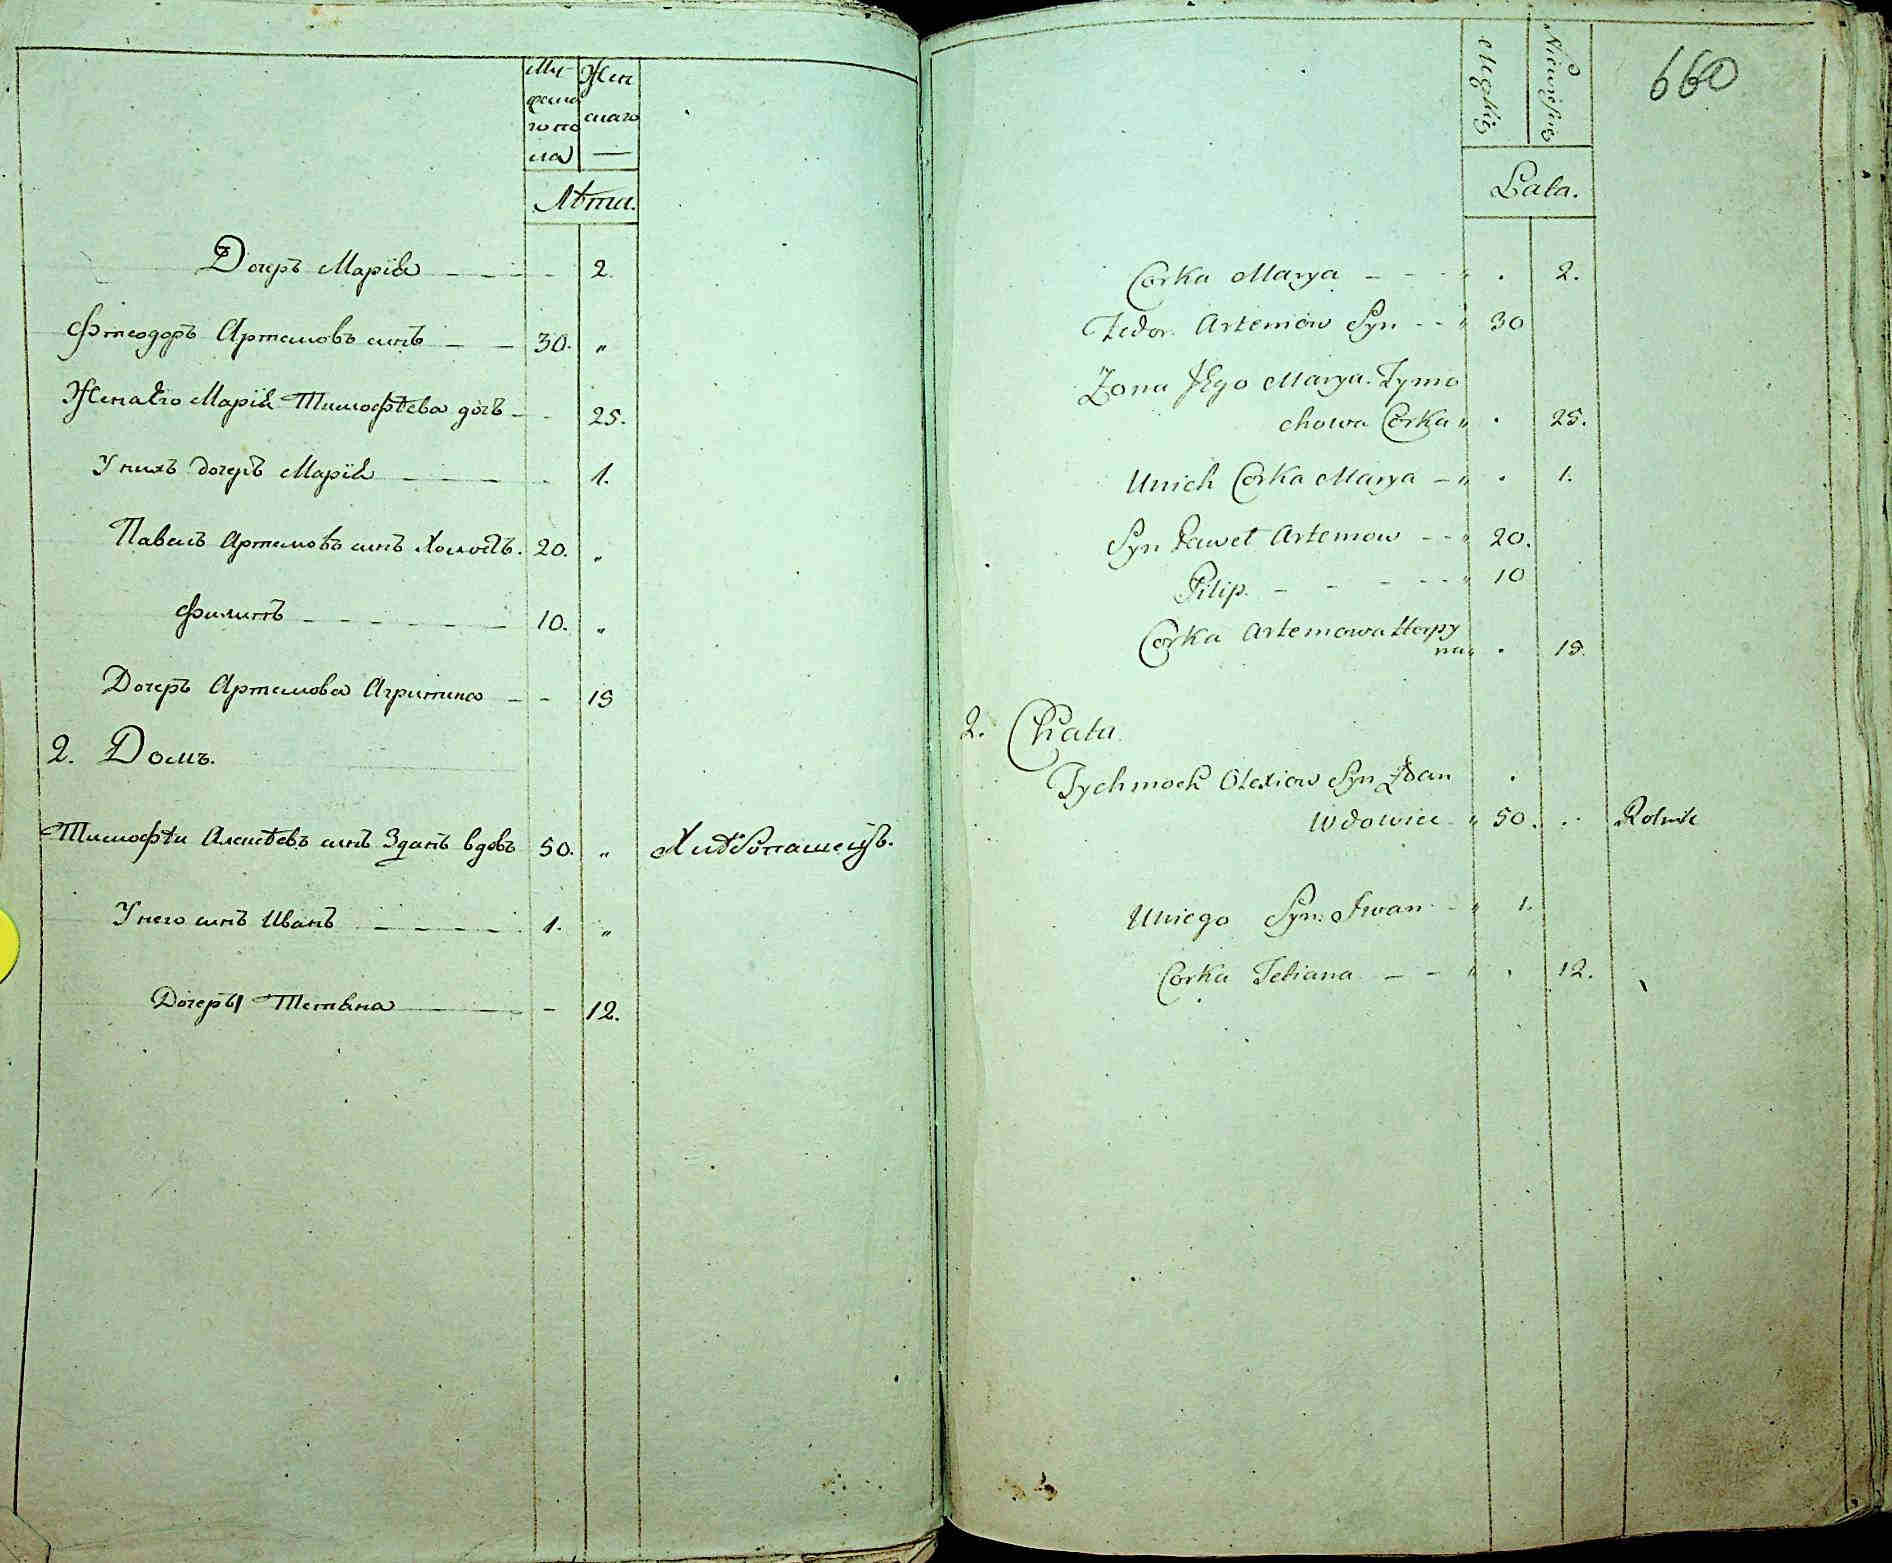 Му-
жеска
го по
ла
Жен
скаго
—
Лѣта.
Дочеръ Марія — — - 2.
Фтеодоръ Артемовъ сынъ — — 30. "
Жена Его Марія Тимофѣева дочъ - - 25.
У нихъ дочеръ Марія — — — - 1.
Павелъ Артемовъ сынъ холостъ. 20. "
Филипъ — — — — — — 10. "
Дочеръ Артемова Агрипина - - 15
2. Домъ.
Тимофѣй Алексѣевъ сынъ Зданъ вдовъ 50. " Хлѣбопашецъ.
У него сынъ Иванъ — — — — 1. "
Дочеръ Тетіяна — — — - 12.
660
Męzkiey
Niewiesciey
Lata.
Corka Marya - - - " . 2.
Fedor Artemow Syn - - " 30
Zona Jego Marya Tymo
chowa Corka " . 25.
Unich Corka Marya - " . 1.
Syn Paweł Artemow - - " 20.
Filip. - - - - - " 10
Corka Artemowa Horpy
na " . 15.
2. Chata
Tychmoch Olexiow Syn Zdan .
Wdowiec " 50. .. Rolnik
Uniego Syn Iwan - " 1.
Corka Tetiana - - " . 12.